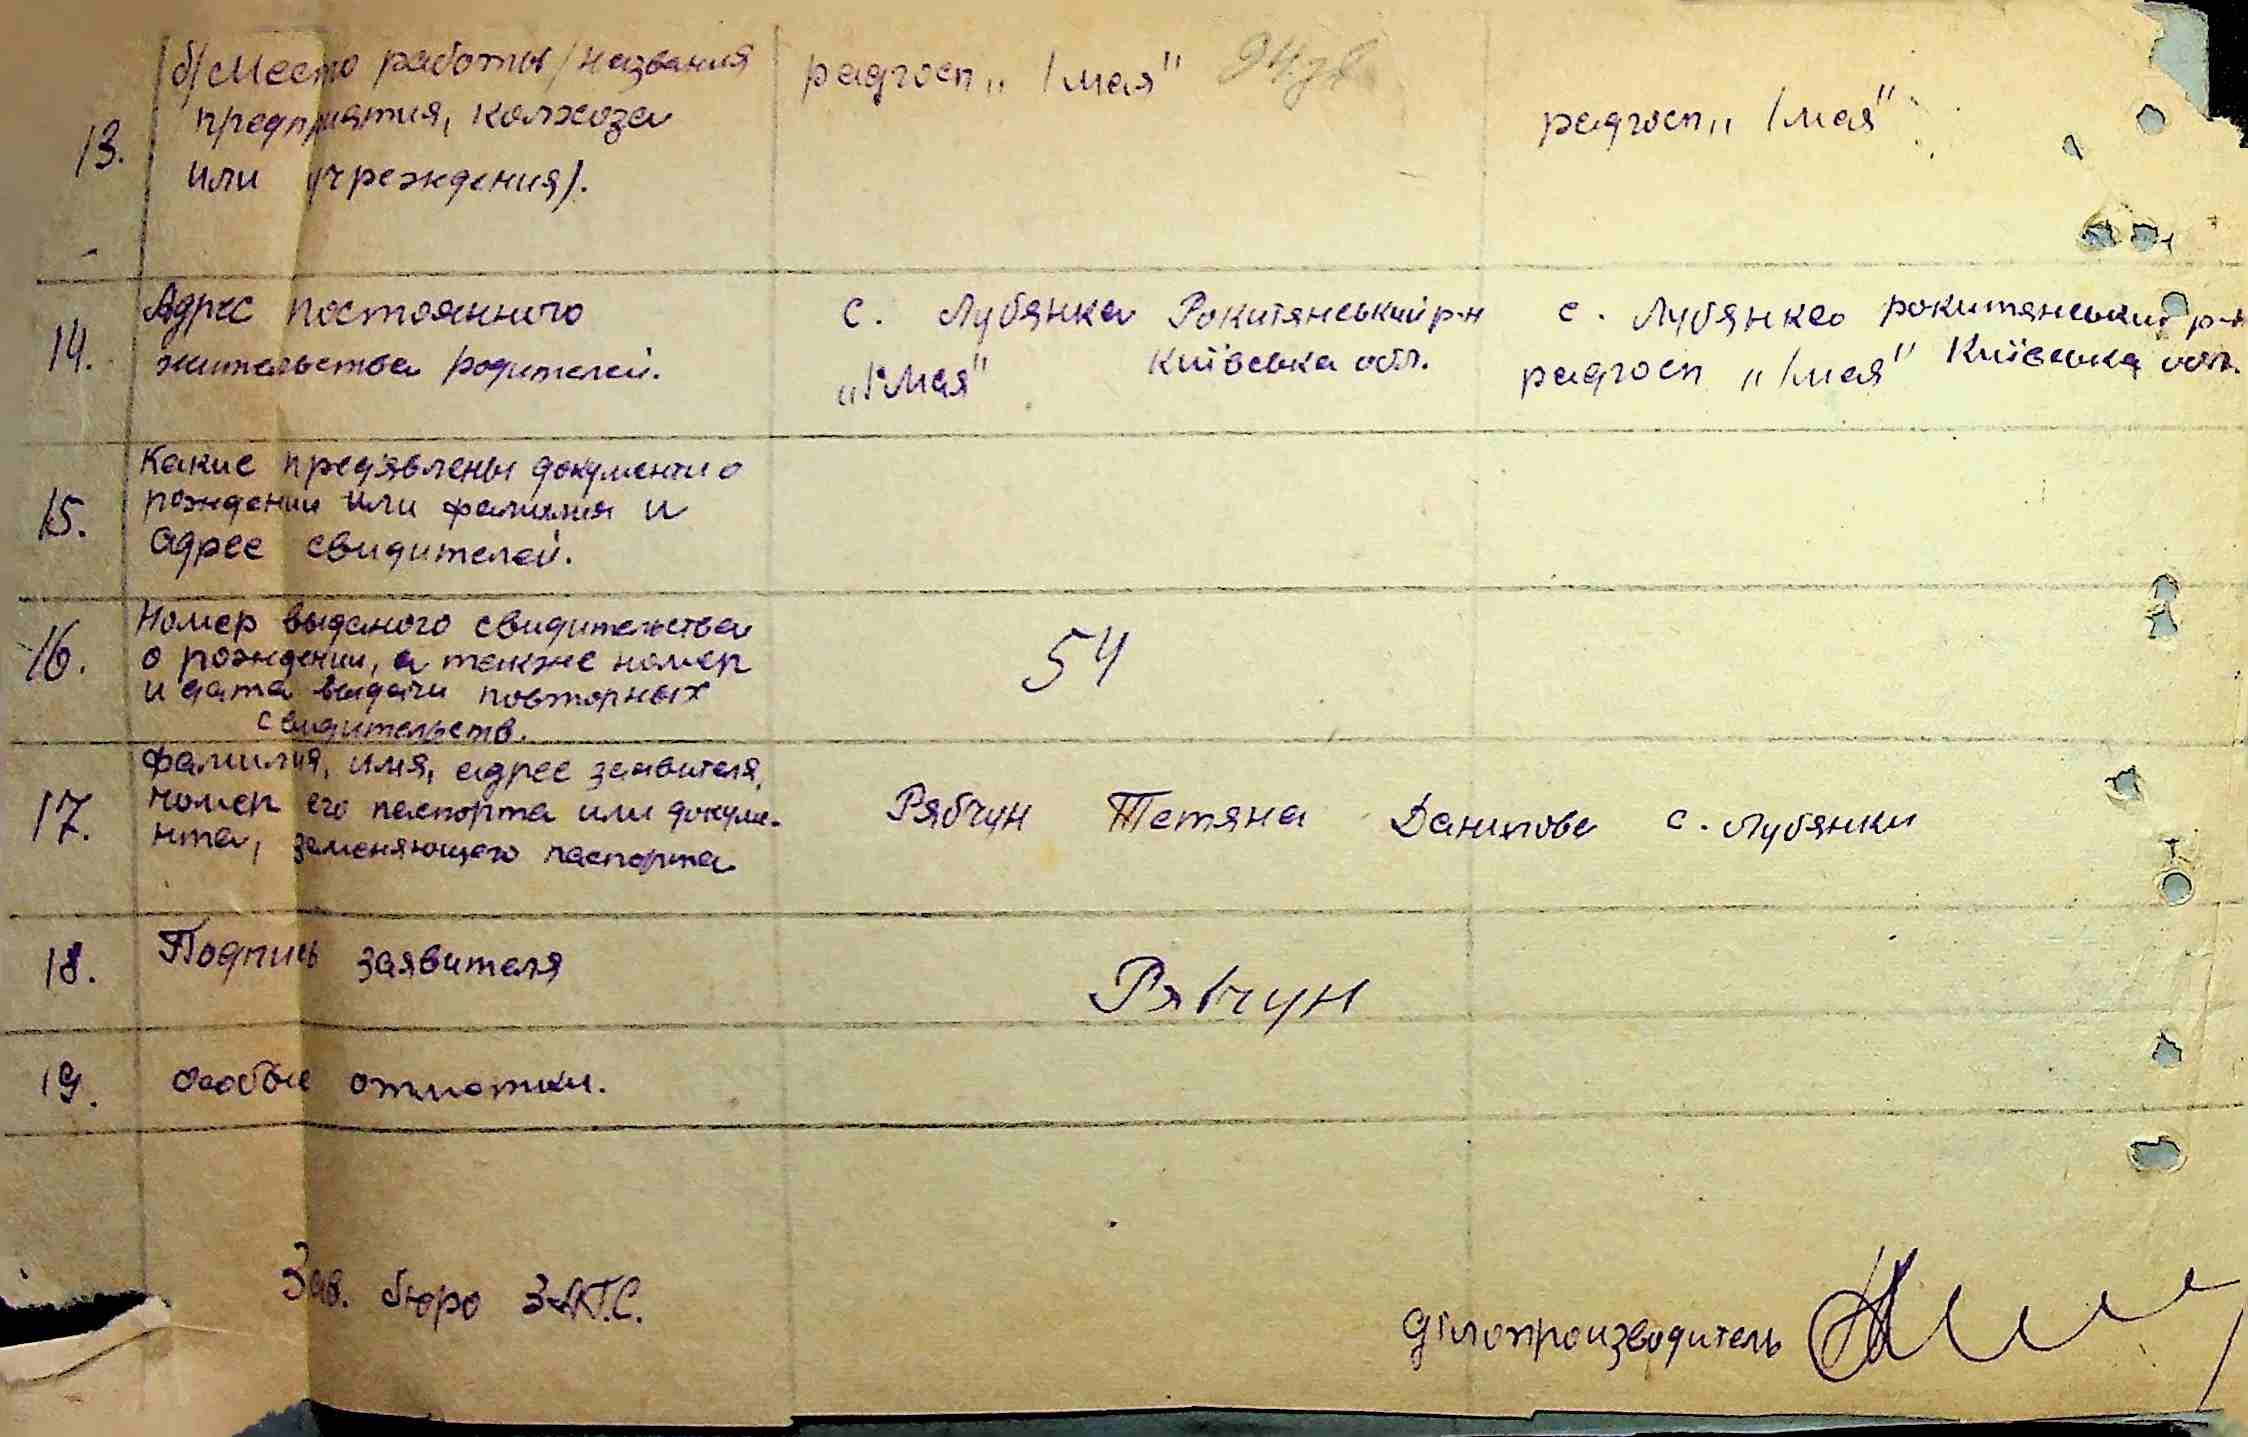 13.
б/ Место работы /названия
предприятия, колхоза
или учреждения/.
радгосп „ 1 мая"
радгосп „ 1 мая"
14.
Адрес постоянного
жительства родителей.
с. Лубянка Рокитянський р-н
„1 Мая" Київська обл.
с. Лубянка рокитянський р-н
радгосп „ 1 мая" Київська обл.
15.
Какие пред'явлены документи о
рождении или фамилия и
адрес свидителей.
16.
Номер выданого свидительства
о рождении, а также номер
и дата выдачи повторных
свидительств.
54
17.
Фамилия, имя, адрес заявителя,
номер его паспорта или докуме-
нта, заменяющего паспорта
Рябчун Тетяна Данилова с. Лубянки
18.
Подпись заявителя
Рябчун
19.
особые отметки.
Зав. бюро ЗАГС.
діломроизводитель